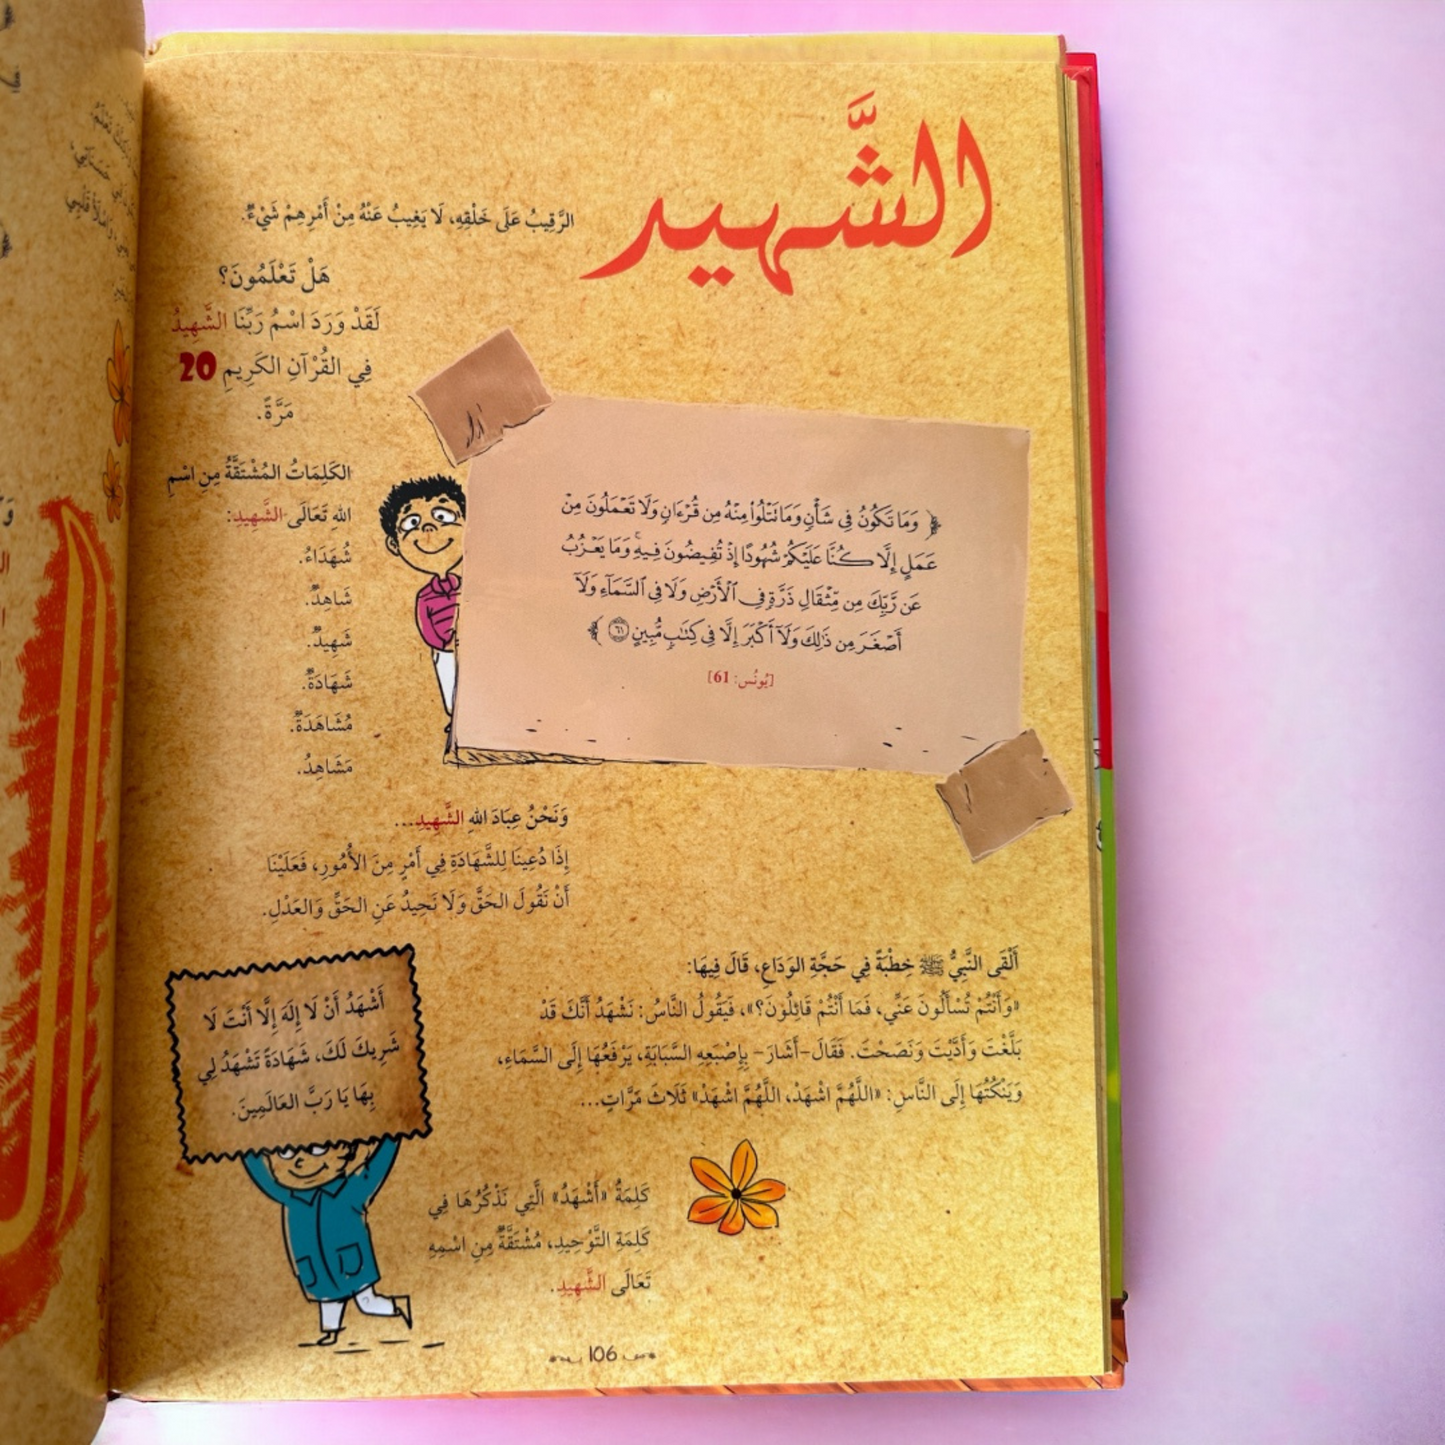 الشَّهيد
الرَّقِيبُ عَلَى خَلْقِهِ، لَا يَغِيبُ عَنْهُ مِنْ أَمْرِهِمْ شَيْءٌ.
هَلْ تَعْلَمُونَ؟
لَقَدْ وَرَدَ اسْمُ رَبِّنَا الشَّهِيدُ
فِي القُرْآنِ الكَرِيمِ 20
مَرَّةً.
الكَلِمَاتُ المُشْتَقَّةُ مِنِ اسْمِ
اللهِ تَعَالَى الشَّهِيدِ:
شُهَدَاءُ.
شَاهِدٌ.
شَهِيدٌ.
شَهَادَةٌ.
مُشَاهَدَةٌ.
مَشَاهِدُ.
﴿ وَمَا تَكُونُ فِى شَأْنٍ وَمَا تَتْلُوا۟ مِنْهُ مِن قُرْءَانٍ وَلَا تَعْمَلُونَ مِنْ
عَمَلٍ إِلَّا كُنَّا عَلَيْكُمْ شُهُودًا إِذْ تُفِيضُونَ فِيهِ ۚ وَمَا يَعْزُبُ
عَن رَّبِّكَ مِن مِّثْقَالِ ذَرَّةٍ فِى ٱلْأَرْضِ وَلَا فِى ٱلسَّمَآءِ وَلَآ
أَصْغَرَ مِن ذَٰلِكَ وَلَآ أَكْبَرَ إِلَّا فِى كِتَٰبٍ مُّبِينٍ ٦١ ﴾
[يُونُس: 61]
وَنَحْنُ عِبَادَ اللهِ الشَّهِيدِ...
إِذَا دُعِينَا لِلشَّهَادَةِ فِي أَمْرٍ مِنَ الأُمُورِ، فَعَلَيْنَا
أَنْ نَقُولَ الحَقَّ وَلَا نَحِيدُ عَنِ الحَقِّ وَالعَدْلِ.
أَلْقَى النَّبِيُّ ﷺ خِطْبَةً فِي حَجَّةِ الوَدَاعِ، قَالَ فِيهَا:
«وَأَنْتُمْ تُسْأَلُونَ عَنِّي، فَمَا أَنْتُمْ قَائِلُونَ؟»، فَيَقُولُ النَّاسُ: نَشْهَدُ أَنَّكَ قَدْ
بَلَّغْتَ وَأَدَّيْتَ وَنَصَحْتَ. فَقَالَ-أَشَارَ- بِإِصْبَعِهِ السَّبَابَةِ، يَرْفَعُهَا إِلَى السَّمَاءِ،
وَيَنْكُتُهَا إِلَى النَّاسِ: «اللَّهُمَّ اشْهَدْ، اللَّهُمَّ اشْهَدْ» ثَلَاثَ مَرَّاتٍ...
أَشْهَدُ أَنْ لَا إِلَهَ إِلَّا أَنْتَ لَا
شَرِيكَ لَكَ، شَهَادَةً تَشْهَدُ لِي
بِهَا يَا رَبَّ العَالَمِينَ.
كَلِمَةُ «أَشْهَدُ» الَّتِي نَذْكُرُهَا فِي
كَلِمَةِ التَّوْحِيدِ، مُشْتَقَّةٌ مِنِ اسْمِهِ
تَعَالَى الشَّهِيدِ.
106